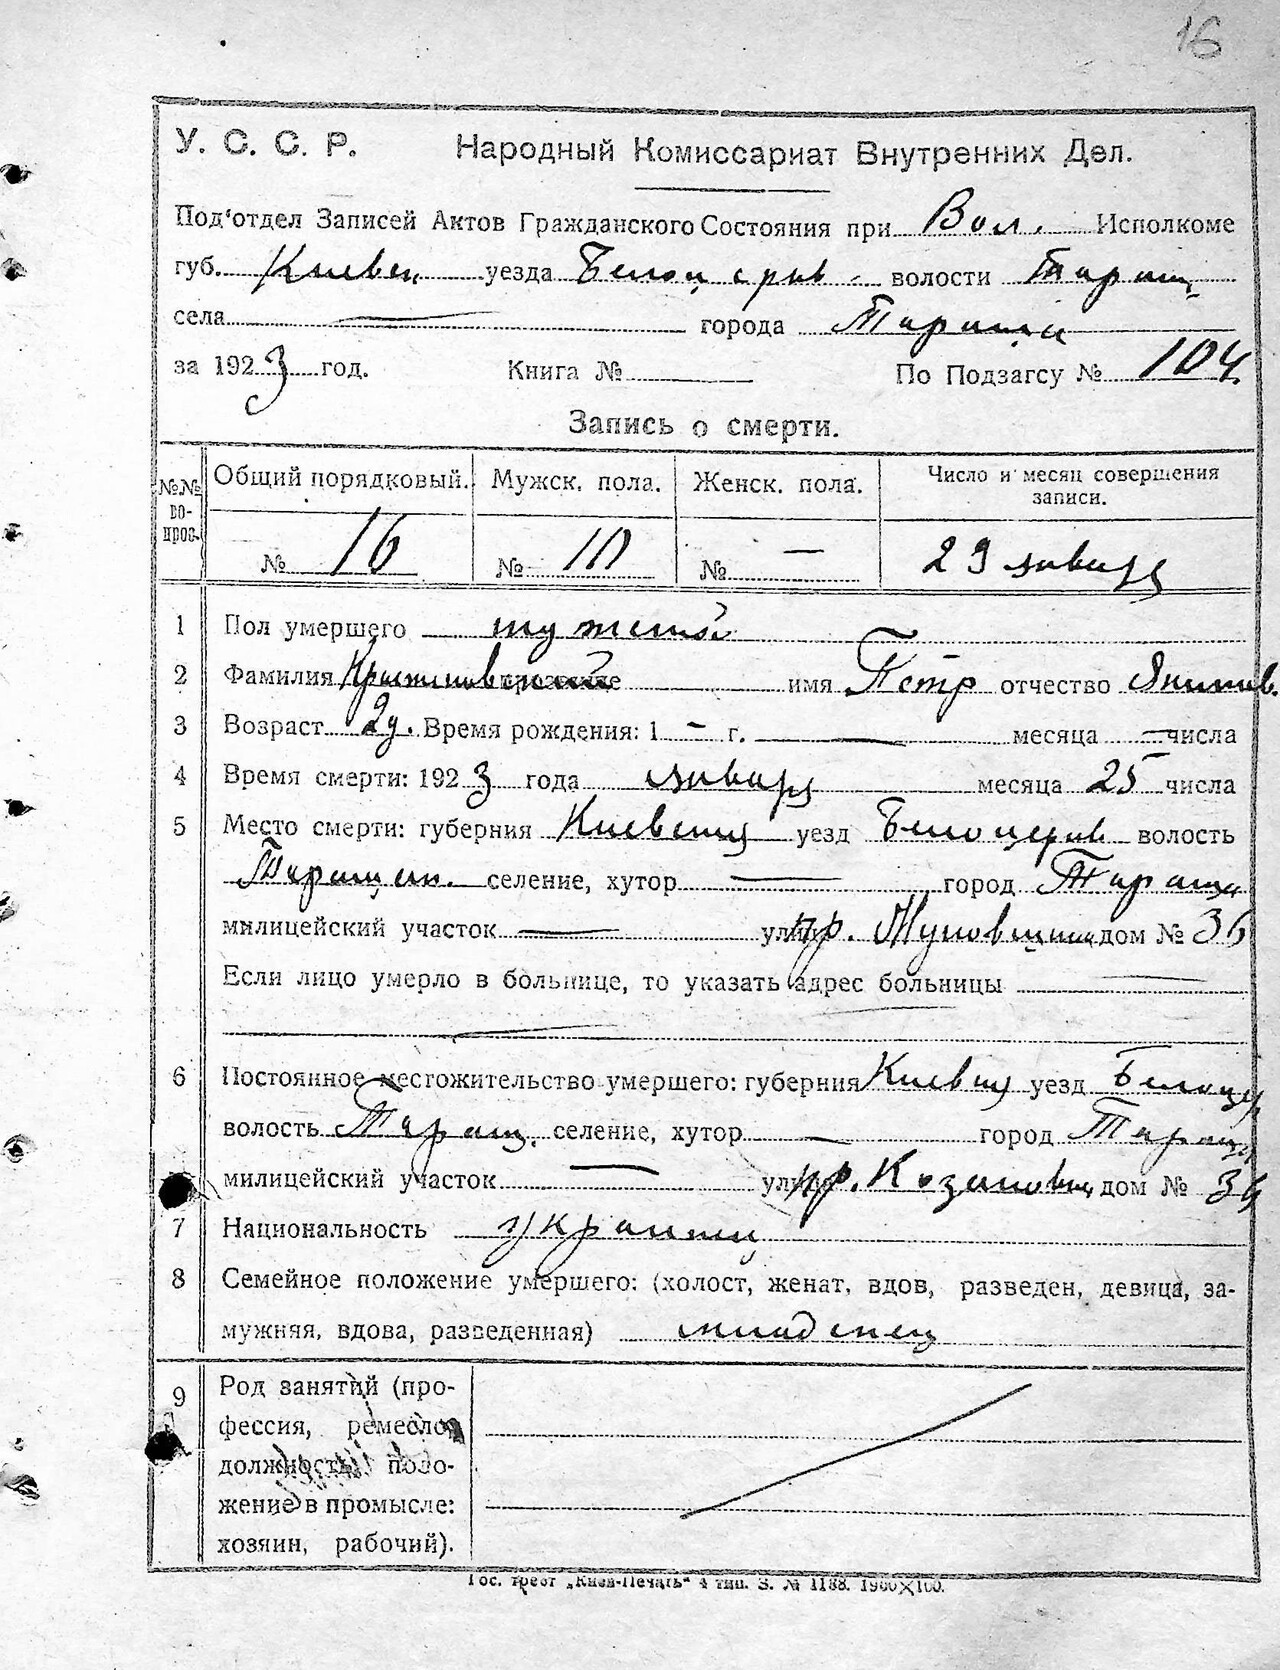 16
У. С. С. Р. Народный Комиссариат Внутренних Дел.
Под'отдел Записей Актов Гражданского Состояния при Вол. Исполкоме
губ. Киевск уезда Белоцерков волости Таращ
села — города Тараща
за 1923 год. Книга № По Подзагсу № 104.
Запись о смерти.
№№ вопрос. Общий порядковый. Мужск. пола. Женск. пола. Число и месяц совершения записи.
№ 16 № 10 № — 29 января
1 Пол умершего мужской
2 Фамилия имя Петр отчество
3 Возраст 2 г. Время рождения: 1 — г. — месяца — числа
4 Время смерти: 1923 года января месяца 25 числа
5 Место смерти: губерния Киевская уезд Белоцерков волость
Таращан. селение, хутор — город Тараща
милицейский участок — улица пр. дом № 36
Если лицо умерло в больнице, то указать адрес больницы —
—
6 Постоянное местожительство умершего: губерния Киевская уезд Белоцер
волость Таращ. селение, хутор — город Тараща
милицейский участок — улица пр. дом №
7 Национальность украинец
8 Семейное положение умершего: (холост, женат, вдов, разведен, девица, за-
мужняя, вдова, разведенная) младенец
9 Род занятий (про-
фессия, ремесло,
должность, поло-
жение в промысле:
хозяин, рабочий).
Гос. трест „Киев-Печать“ 4 тип. З. № 1188. 1900×100.